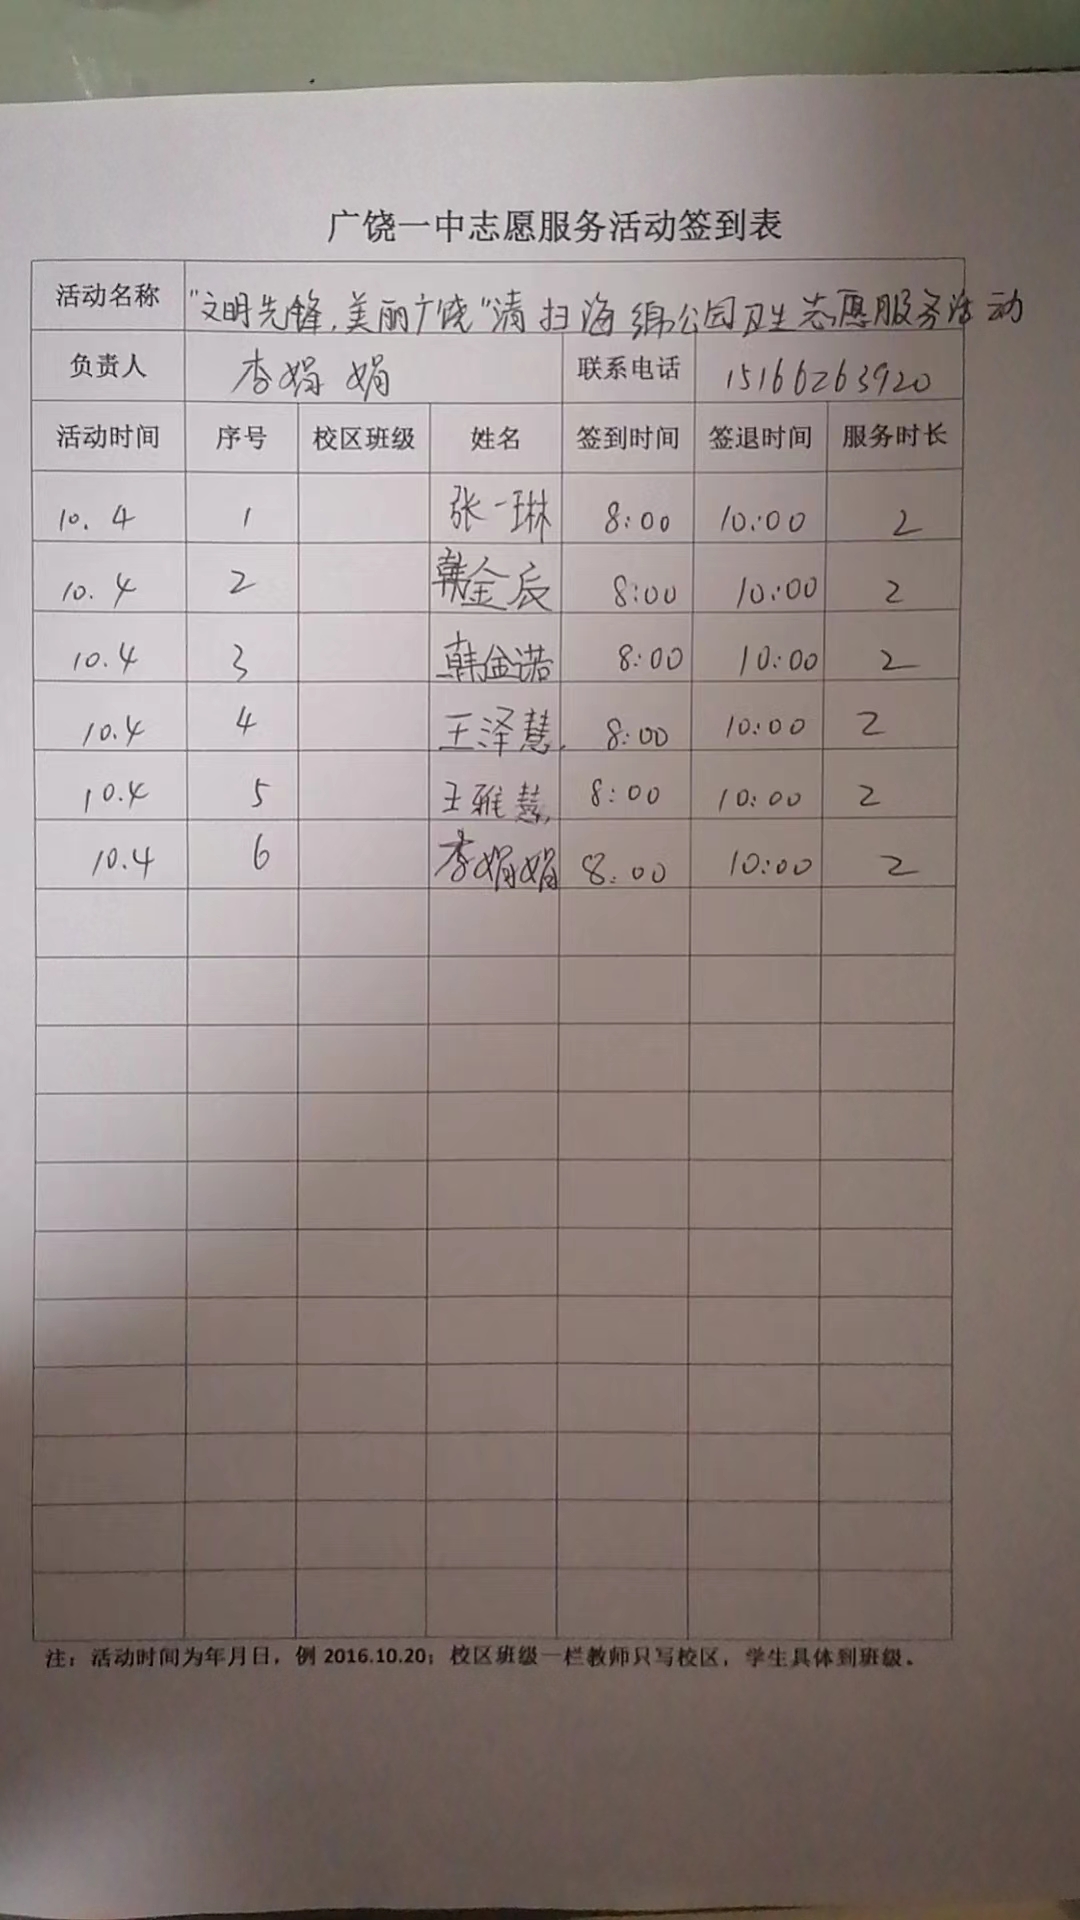 广饶一中志愿服务活动签到表
活动名称 "文明先锋,美丽广饶"清扫海绵公园卫生志愿服务活动
负责人 李娟娟 联系电话 15166263920
活动时间 序号 校区班级 姓名 签到时间 签退时间 服务时长
10.4 1 张一琳 8:00 10:00 2
10.4 2 韩金辰 8:00 10:00 2
10.4 3 韩金诺 8:00 10:00 2
10.4 4 王泽慧. 8:00 10:00 2
10.4 5 王雅慧, 8:00 10:00 2
10.4 6 李娟娟 8:00 10:00 2
注：活动时间为年月日，例 2016.10.20；校区班级一栏教师只写校区，学生具体到班级。